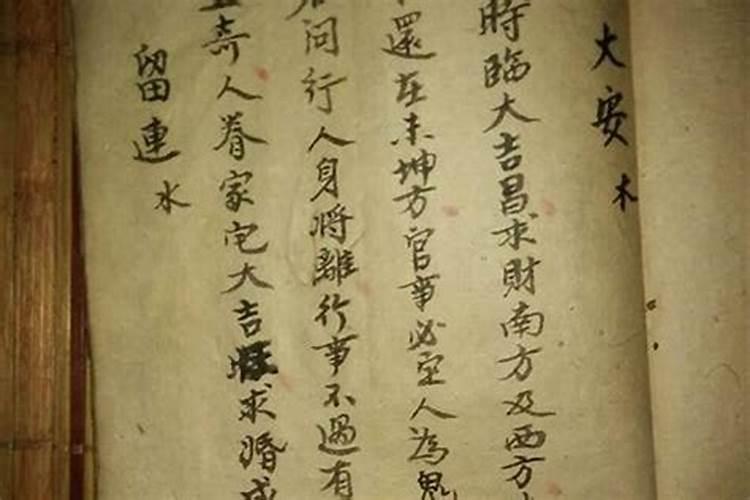 大安木
時臨大吉昌求財南方及西方
還在未坤方官事必至人為鬼
問行人身將離行事不過有
奇人眷家宅大吉旺求婚成
留連水